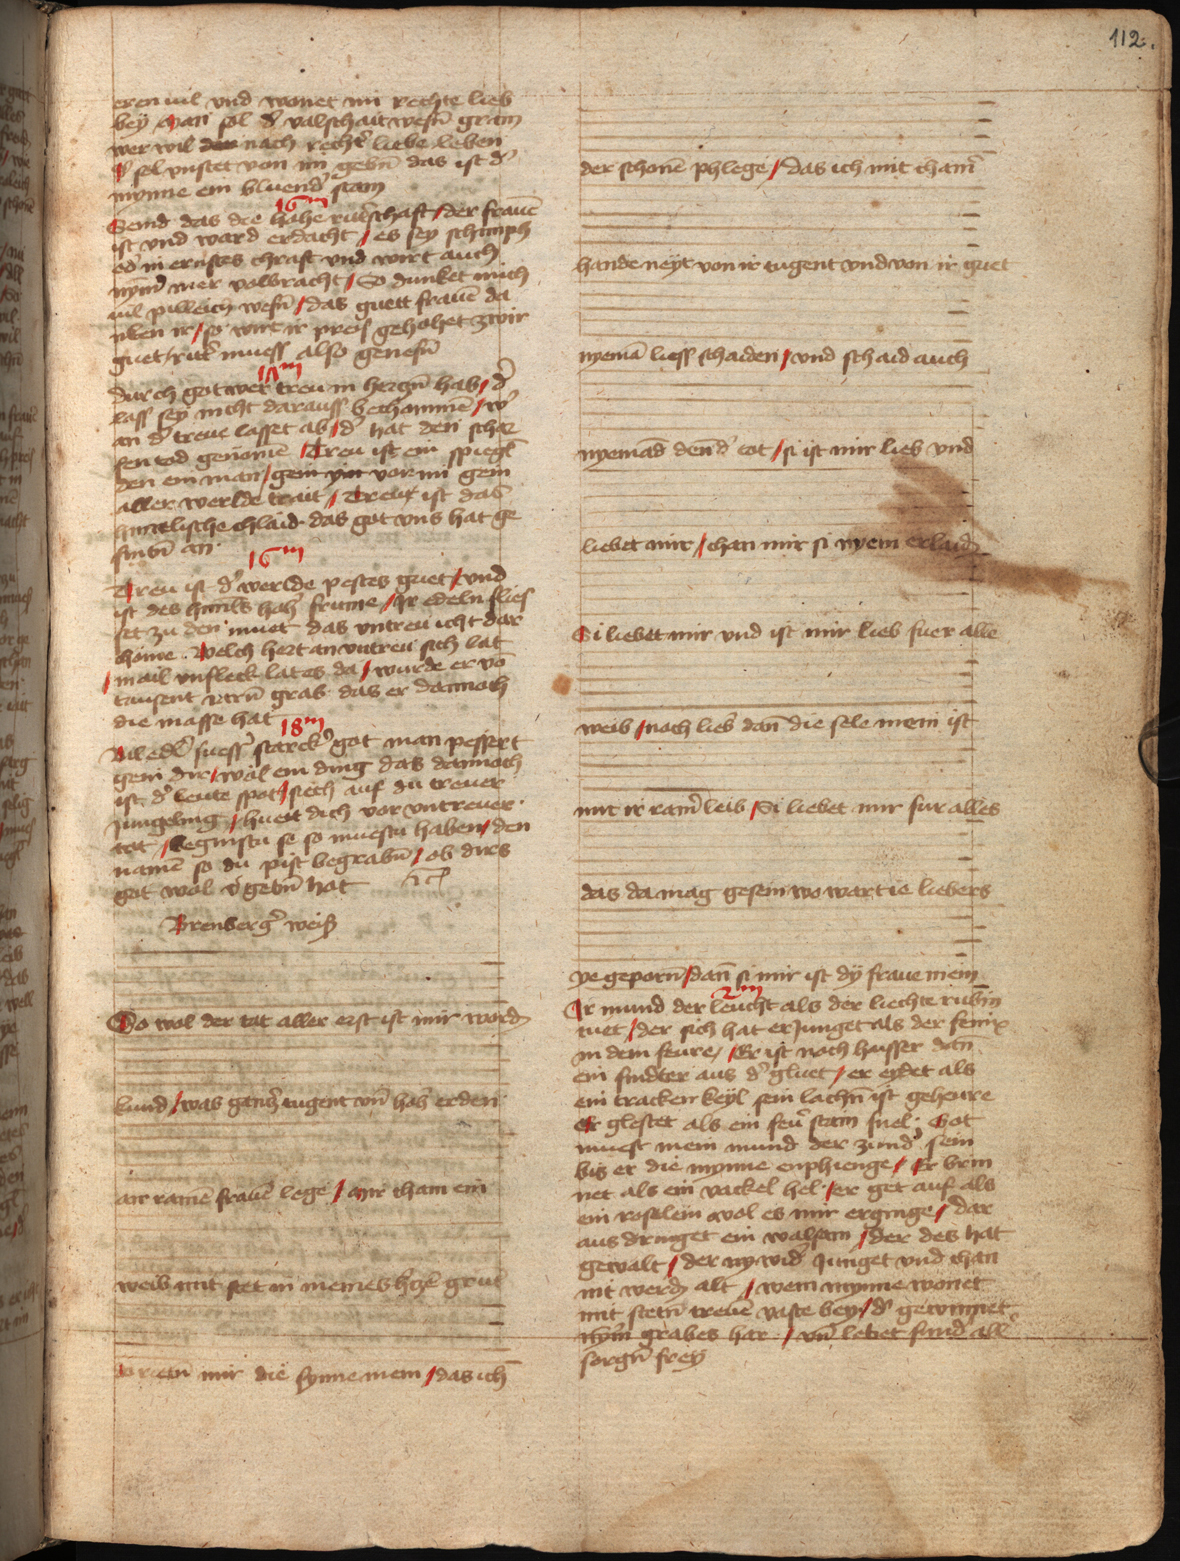 112.
eren vil vnd wonet im rechte lieb
bey Man sol d' valschait wesn̄ gram
wer wil nach recht' liebe leben
d' sol vnstet von im gebn̄ das ist d'
mynne ein bluend' stam
16m
Seind das die hohe rittschaft / der frauē
ist vnd ward erdacht / es sey schimph
od' in ernstes chraft vnd wirt auch
nym̄ mer volbracht / So dunket mich
vil pilleich wesn̄ / das guett frauē da
ir / so wirt ir preis gehohet zwir
guet ritt' muess also genesn̄
durch got wer treu in herczn̄ hab / d'
lass sey nicht darauss bechommē / w'
an d' treue lasset ab / d' hat den
tod genomē / Treu ist ein spiegl
den ein man / gein vor im gein
aller werlde trait / Treu ist das
himelische chlaid das got vns hat ge
an
16m
Treu ist d' werlde pestes guet / vnd
ist des himls hoh' frume / Ir edeln flies
set zu den muet das vntreu icht dar
chöme . Welch hert an vntreu sich lat
/ mail vnfleck lat es da / wurde er vō
tausent gras das er dannoch
die masse hat
18m
Vil edl' suess' starck' got man pessert
gein dir / wol ein ding das dannoch
ist d' leute spot / sech auf du treuer
Jungeling / huett dich vor vntreuer
tat / so muestu haben / den
namē so du pist begrabn̄ / ob dirs
got wol v'gebn̄ hat
Prenberg' weis
So wol der tat aller erst ist mir word
kund / was gancz' tugent vn̄ hoh' erden
an rainē frauē lege / Mir cham ein
weib mit stet in meines h'czē grut
mir die synne mein / das ich
der schonē phlege / das ich nit cham̄
hande neyt von ir tugent vnd von ir guet
nyemā liess schaiden / vnd schaid auch
nyemād den̄ d' tot / si ist mir lieb vnd
liebet mir / chan mir si nyem erlaidn
Si liebet mir vnd ist mir lieb fuer alle
weib / noch lieb' dan̄ die sele mein ist
mit ir rain̄ leib / Si liebet mir fur alles
das da mag gesein wo wart ie liebers
ye geporn / dan̄ si mir ist dy fraue mein
2m
Ir mund der leucht als der liechte rubin
tuet / der sich hat erJunget als der fenix
in dem feure / Er ist noch haisser dan̄
ein aus d' gluet / er eydet als
ein tracken keyl sein lachn̄ ist geheure
er glestet als ein feur stain snel . Got
muest mein mund der zund' sein
bis er die mynne enphienge / Er brin
net als ein vackel hel / er get auf als
ein roselein wol es mir erginge / dar
aus dringet ein walsam / der des hat
gewalt / der ny wid' Junget vnd chan
nit werdn alt / wem mynne wonet
mit stetn̄ treuē vaste bey / d' gewinnet
nym̄ grabes har / vn̄ lebet sund' all'
sorgn̄ frey